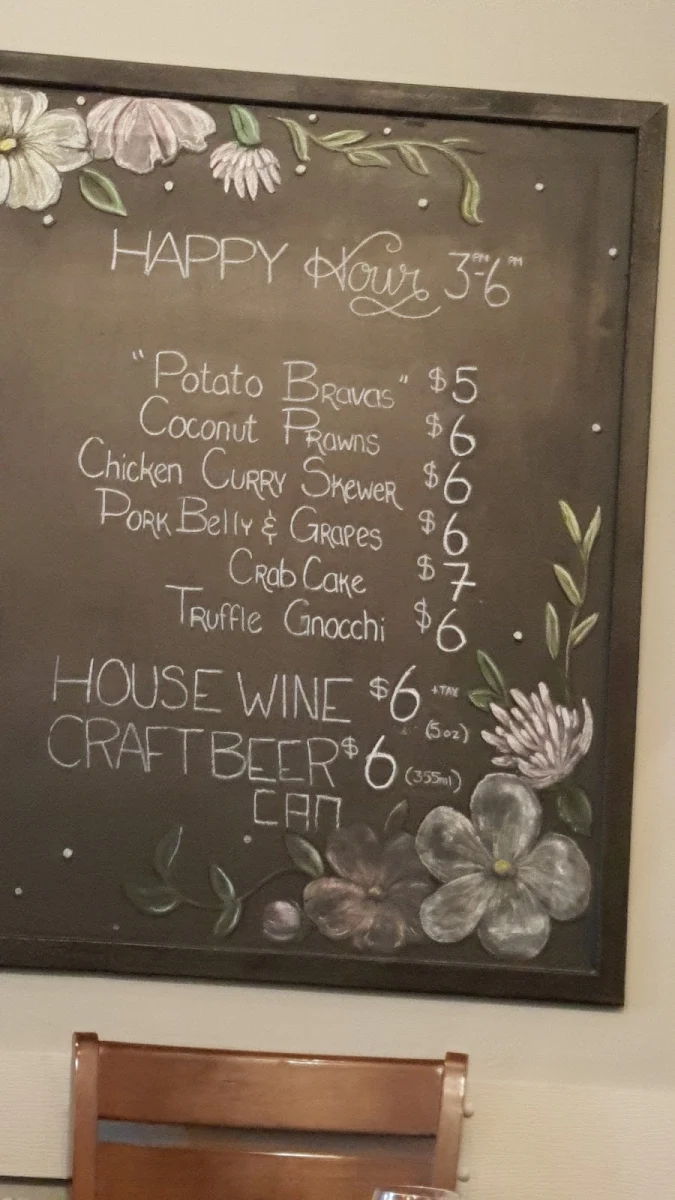 HAPPY Hour 3PM-6PM
"Potato Bravas" $5
Coconut Prawns $6
Chicken Curry Skewer $6
Pork Belly & Grapes $6
Crab Cake $7
Truffle Gnocchi $6
HOUSE WINE $6 +TAX (5oz)
CRAFT BEER $6 (355ml)
CAN